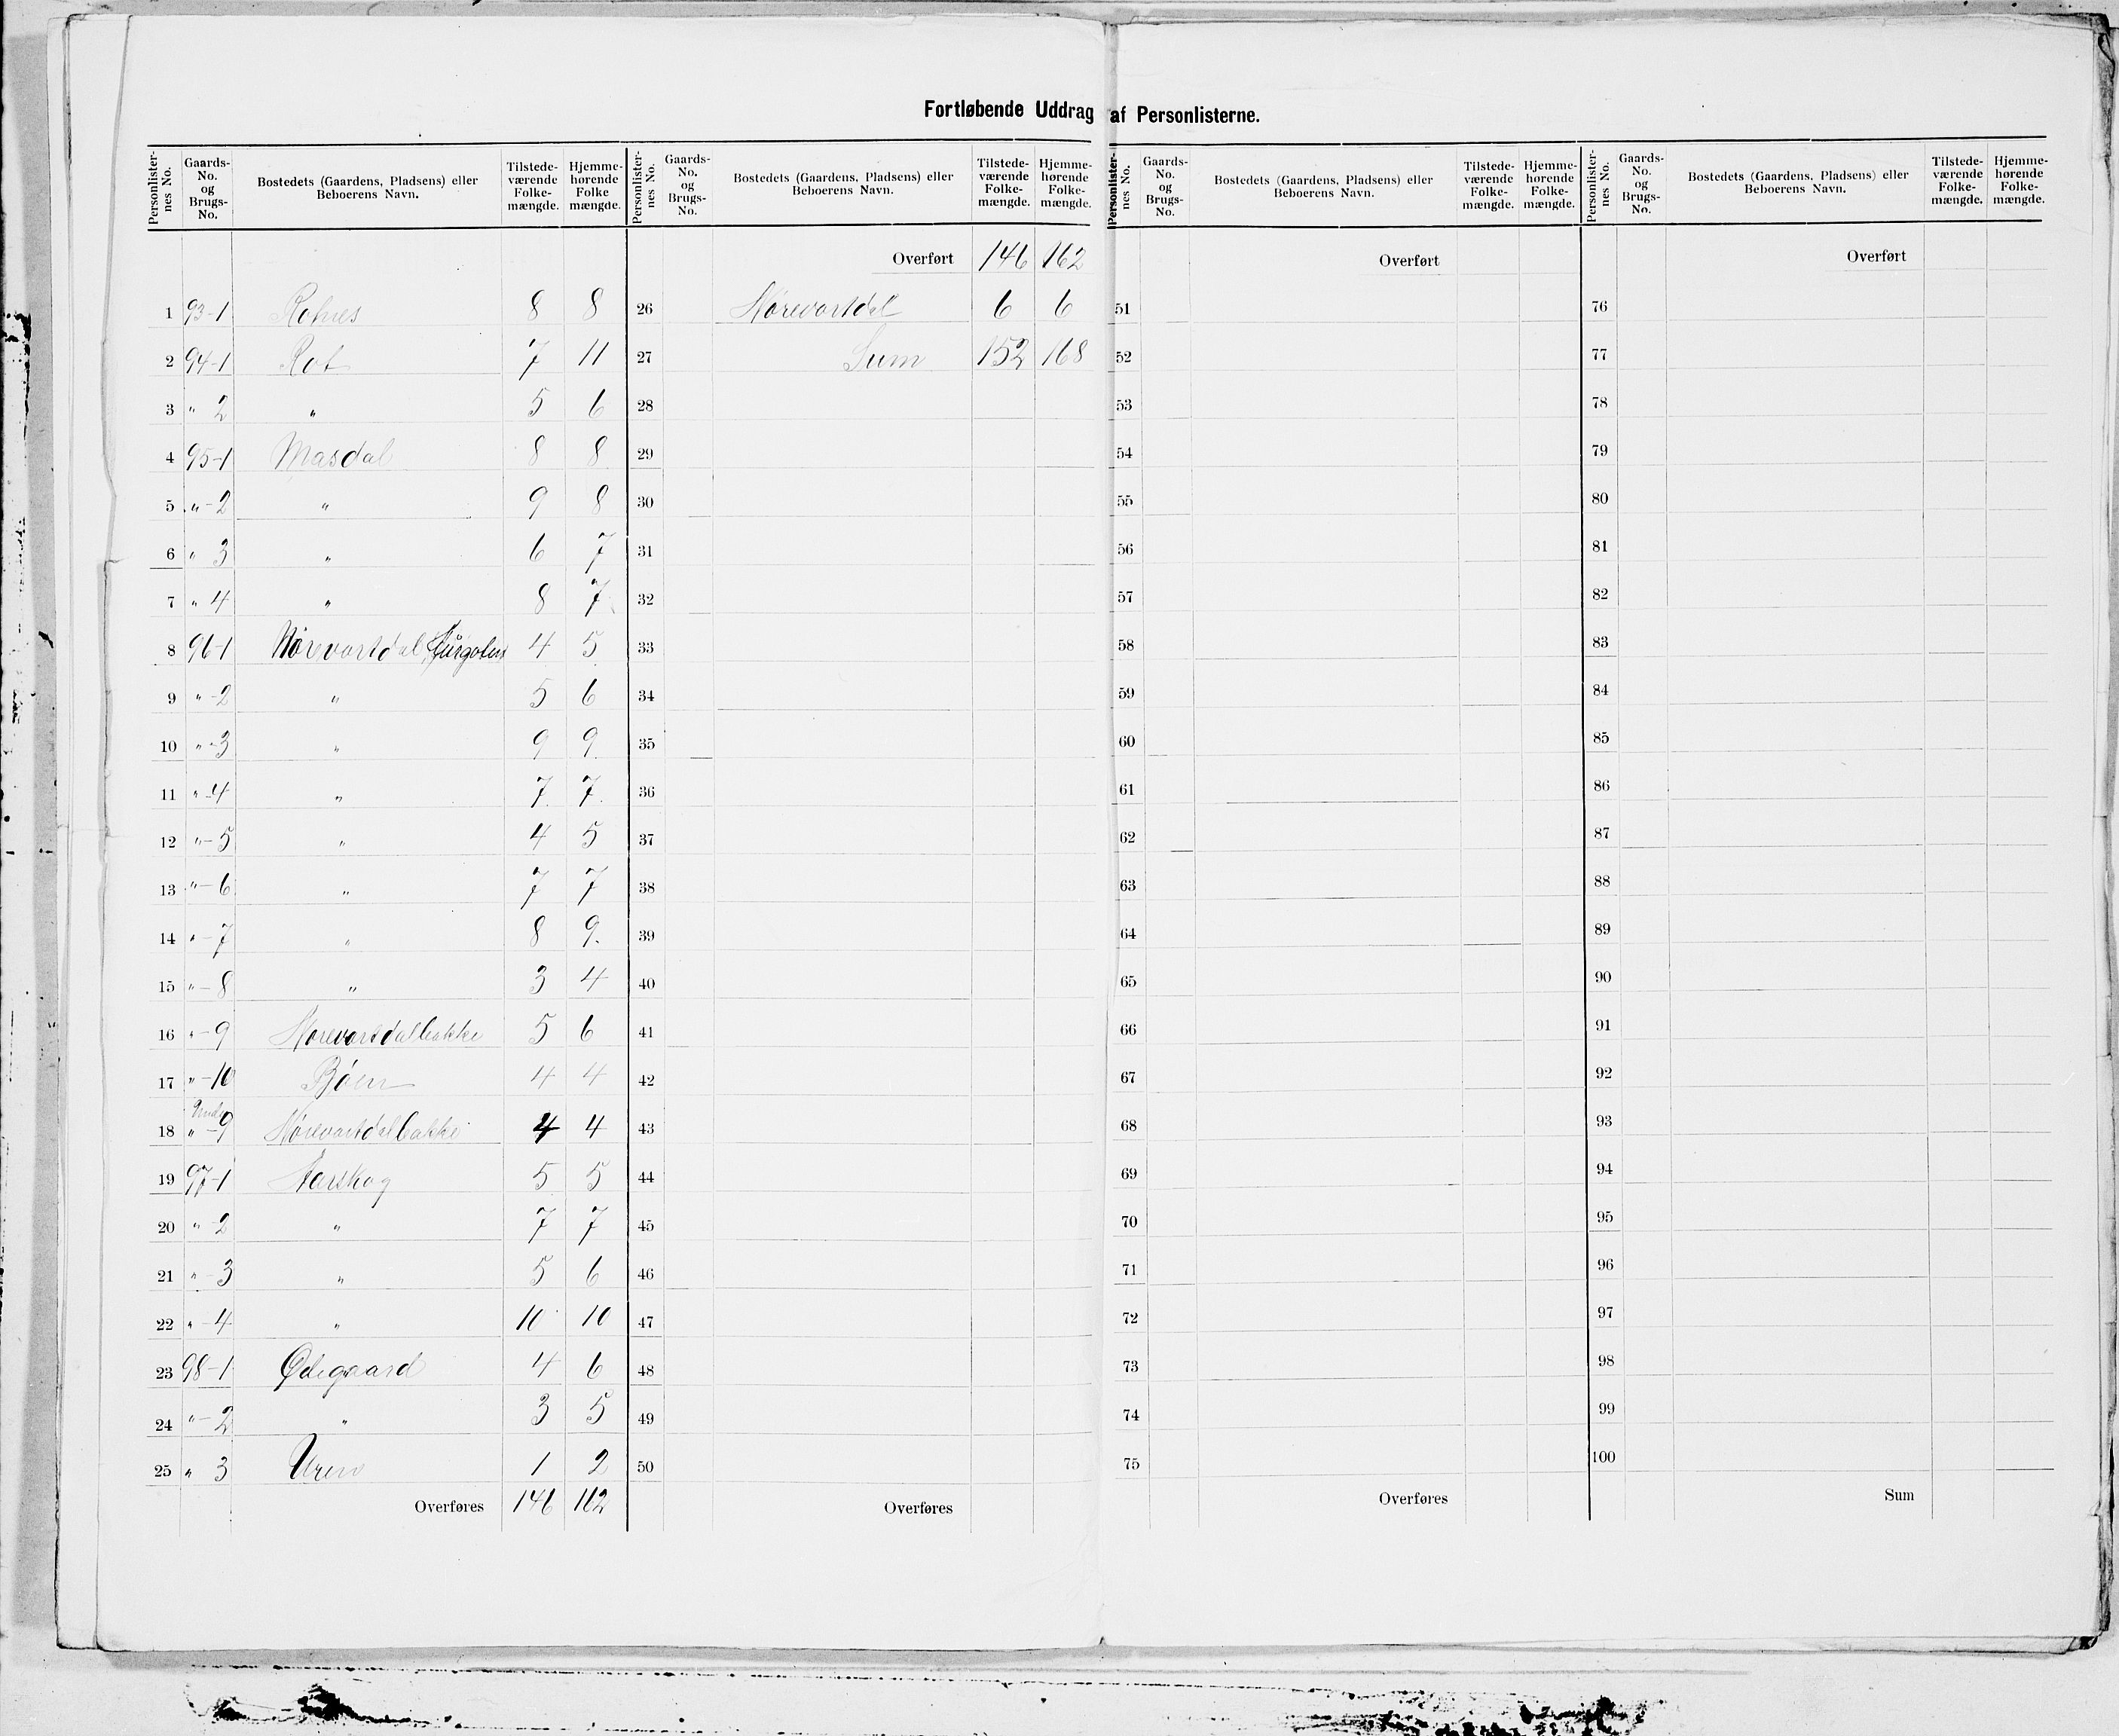 Fortløbende Uddrag af Personlisterne.
Personlister-nes No. Gaards-No. og Brugs-No. Bostedets (Gaardens, Pladsens) eller Beboerens Navn. Tilstede-værende Folke-mængde. Hjemme-hørende Folke mængde. Personlister-nes No. Gaards-No. og Brugs-No. Bostedets (Gaardens, Pladsens) eller Beboerens Navn. Tilstede-værende Folke-mængde. Hjemme-hørende Folke-mængde. Personlister-nes No. Gaards-No. og Brugs-No. Bostedets (Gaardens, Pladsens) eller Beboerens Navn. Tilstede-værende Folke-mængde. Hjemme-hørende Folke-mængde. Personlister-nes No. Gaards-No. og Brugs-No. Bostedets (Gaardens, Pladsens) eller Beboerens Navn. Tilstede-værende Folke-mængde. Hjemme-hørende Folke-mængde.
Overført 146 162 Overført Overført
1 93-1 8 8 26 Nørevartdal 6 6 51 76
2 94-1 Rot 7 11 27 Sum 152 168 52 77
3 " 2 " 5 6 28 53 78
4 95-1 Masdal 8 8 29 54 79
5 "-2 " 9 8 30 55 80
6 " 3 " 6 7 31 56 81
7 " 4 " 8 7 32 57 82
8 96-1 Nørevartdal 4 5 33 58 83
9 "-2 " 5 6 34 59 84
10 "-3 " 9 9 35 60 85
11 "-4 " 7 7 36 61 86
12 "-5 " 4 5 37 62 87
13 "-6 " 7 7 38 63 88
14 "-7 " 8 9 39 64 89
15 "-8 " 3 4 40 65 90
16 "-9 Nørevartdalbakke 5 6 41 66 91
17 "-10 Bøen 4 4 42 67 92
18 "-9 Nørevartdalbakke 4 4 43 68 93
19 97-1 Aarskog 5 5 44 69 94
20 "-2 " 7 7 45 70 95
21 "-3 " 5 6 46 71 96
22 "-4 " 10 10 47 72 97
23 98-1 Ødegaard 4 6 48 73 98
24 "-2 " 3 5 49 74 99
25 " 3 Uren 1 2 50 75 100
Overføres 146 162 Overføres Overføres Sum